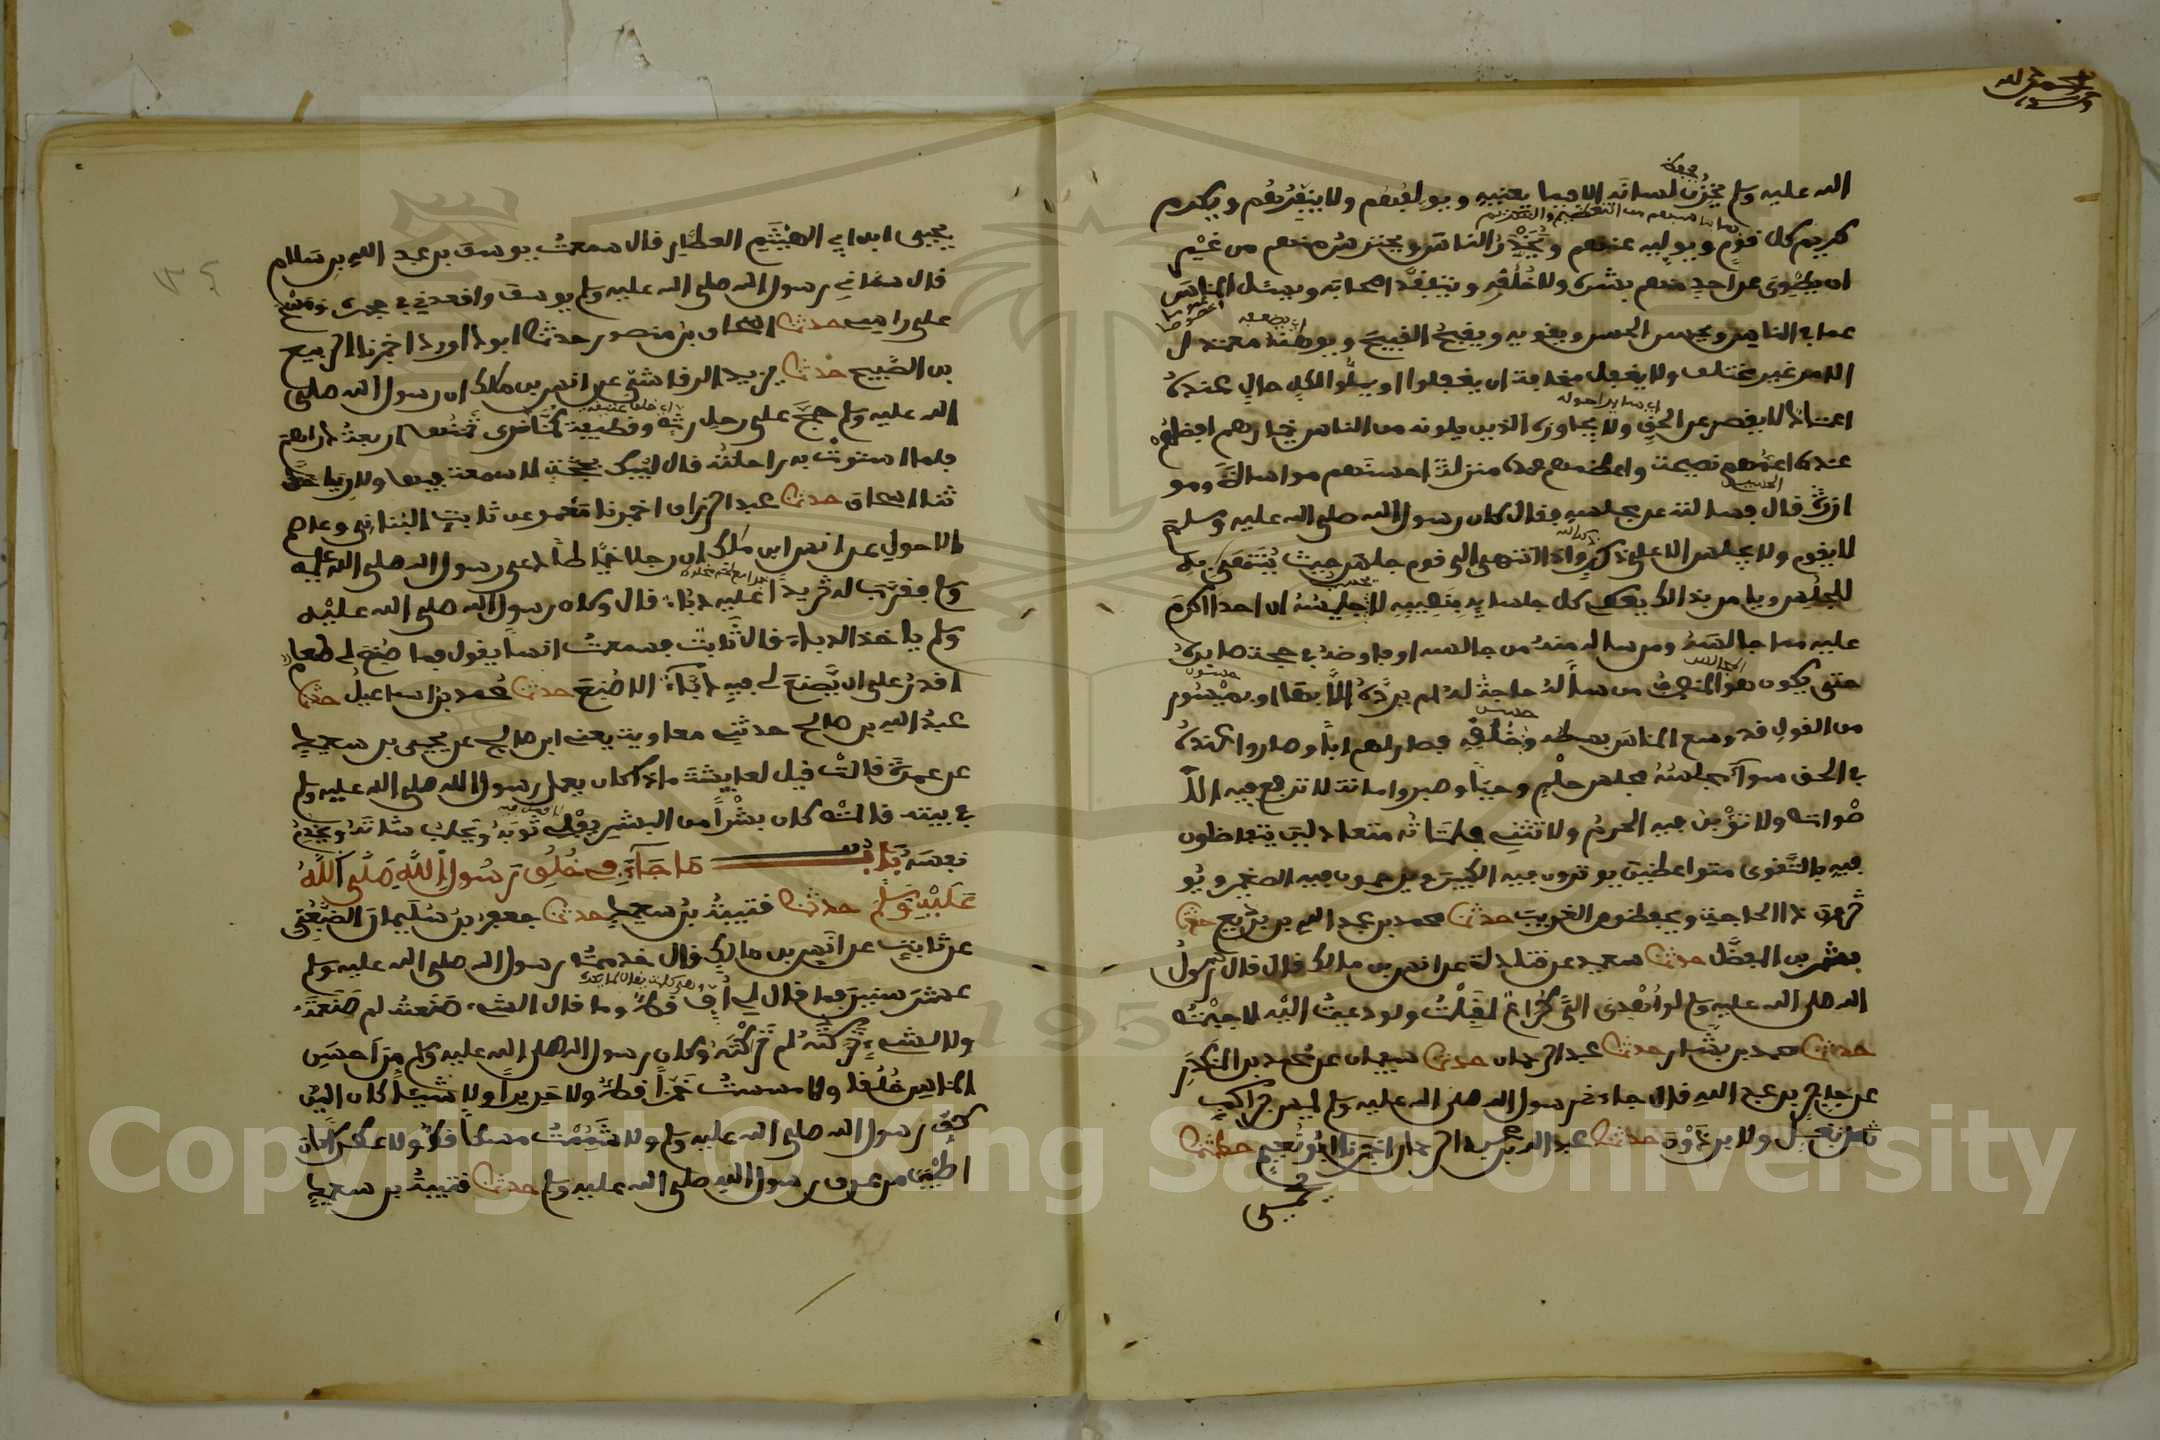 الحمد لله
الله عليه وسلم يخزن لسانه إلا فيما يعنيه ويولفهم ولا ينفرهم ويكرم
كريم كل قوم ويوليه عليهم ويحذر الناس ويحترس منهم من غير
ان يطوى عن احد منهم بشره ولا خلقه ويتفقد اصحابه ويسئل الناس
عما في الناس ويحسن الحسن ويقويه ويقبح القبيح ويوهنه معتدل
الامر غير مختلف ولا يغفل مخافة ان يغفلوا او يملوا لكل حال عنده
عتاد لا يقصر عن الحق ولا يجاوزه الذين يلونه من الناس خيارهم افضلهم
عنده اعمهم نصيحة واعظمهم عنده منزلة احسنهم مواساة ومو
ازرة قال فسالته عن مجلسه فقال كان رسول الله صلى الله عليه وسلم
لا يقوم ولا يجلس الا على ذكر واذا انتهى الى قوم جلس حيث ينتهي به
المجلس ويامر بذالك يعطى كل جلسايه بنصيبه لا جليسه ان احدا اكرم
عليه منه من جالسه ومن ساله من جالسه او فاوضه في حاجة صابره
حتى يكون هو المنصرف من سأله حاجة لم يرده الا بها او بميسور
من القول قد وسع الناس بسطه وخلقه فصار لهم ابا وصاروا عنده
في الحق سوآء مجلسه مجلس حلم وحياء وصبر وامانة لا ترفع فيه الا
صوات ولا تؤبن فيه الحرم ولا تثنى فلتاته متعادلين يتفاضلون
فيه بالتقوى متواضعين يوقرون فيه الكبير ويرحمون فيه الصغير ويو
ثرون ذا الحاجة ويحفظون الغريب حدثنا محمد بن عبد الله بن بزيع حدثنا
بشر بن المفضل حدثنا سعيد عن قتادة عن انس بن مالك قال قال رسول
الله صلى الله عليه وسلم لو اهدى الي كراع لقبلت ولو دعيت اليه لاجبت
حدثنا محمد بن بشار حدثنا عبد الرحمان حدثنا سفيان عن محمد بن المنكدر
عن جابر بن عبد الله قال جاءني رسول الله صلى الله عليه وسلم ليس براكب
بغل ولا برذون حدثنا عبد الله بن عبد الرحمان اخبرنا ابو نعيم حدثنا
يحيى
يحيى ابن ابي الهيثم العطار قال سمعت يوسف بن عبد الله بن سلام
قال سماني رسول الله صلى الله عليه وسلم يوسف واقعدني في حجره ومسح
على راسي حدثنا اسحاق بن منصور حدثنا ابو داوود اخبرنا الربيع
بن الصبيح حدثنا يزيد الرقاشي عن انس بن مالك ان رسول الله صلى
الله عليه وسلم حج على رحل رث وقطيفة كنا نرى ثمنها اربعة دراهم
فلما استوت به راحلته قال لبيك بحجة لا سمعة فيها ولا رياء حد
ثنا اسحاق حدثنا عبد الرزاق اخبرنا معمر عن ثابت البناني وعاصم
الاحول عن انس ابن مالك ان رجلا خياطا دعى رسول الله صلى الله عليه
وسلم فقرب له ثريدا عليه دباء قال وكان رسول الله صلى الله عليه
وسلم ياخذ الدباء قال ثابت فسمعت انسا يقول فما صنع لي طعام
اقدر على ان يصنع لي فيه دباء الا صنع حدثنا محمد بن اسماعيل حدثنا
عبد الله بن صالح حدثني معاوية يعني ابن صالح عن يحيى بن سعيد
عن عمرة قالت قيل لعايشة ماذا كان يعمل رسول الله صلى الله عليه وسلم
في بيته قالت كان بشرا من البشر يفلي ثوبه ويحلب شاته ويخدم
نفسه باب ما جآء في خلق رسول الله صلى الله
عليه وسلم حدثنا قتيبة بن سعيد حدثنا جعفر بن سليمان الضبعي
عن ثابت عن انس بن مالك قال خدمت رسول الله صلى الله عليه وسلم
عشر سنين فما قال لي اف قط وما قال لشيء صنعته لم صنعته
ولا لشيء تركته لم تركته وكان رسول الله صلى الله عليه وسلم من احسن
الناس خلقا ولا مسست خزا قط ولا حريرا ولا شيئا كان الين من
كف رسول الله صلى الله عليه وسلم ولا شممت مسكا قط ولا عطرا كان
اطيب من عرق رسول الله صلى الله عليه وسلم حدثنا قتيبة بن سعيد
Copyright © King Saud University
195